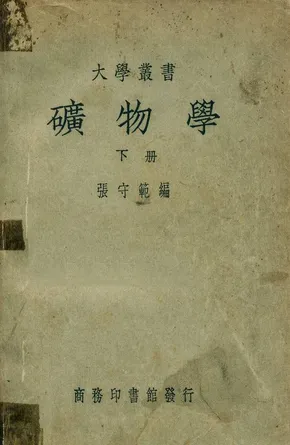 大學叢書
礦物學
下册
張守範編
商務印書館發行